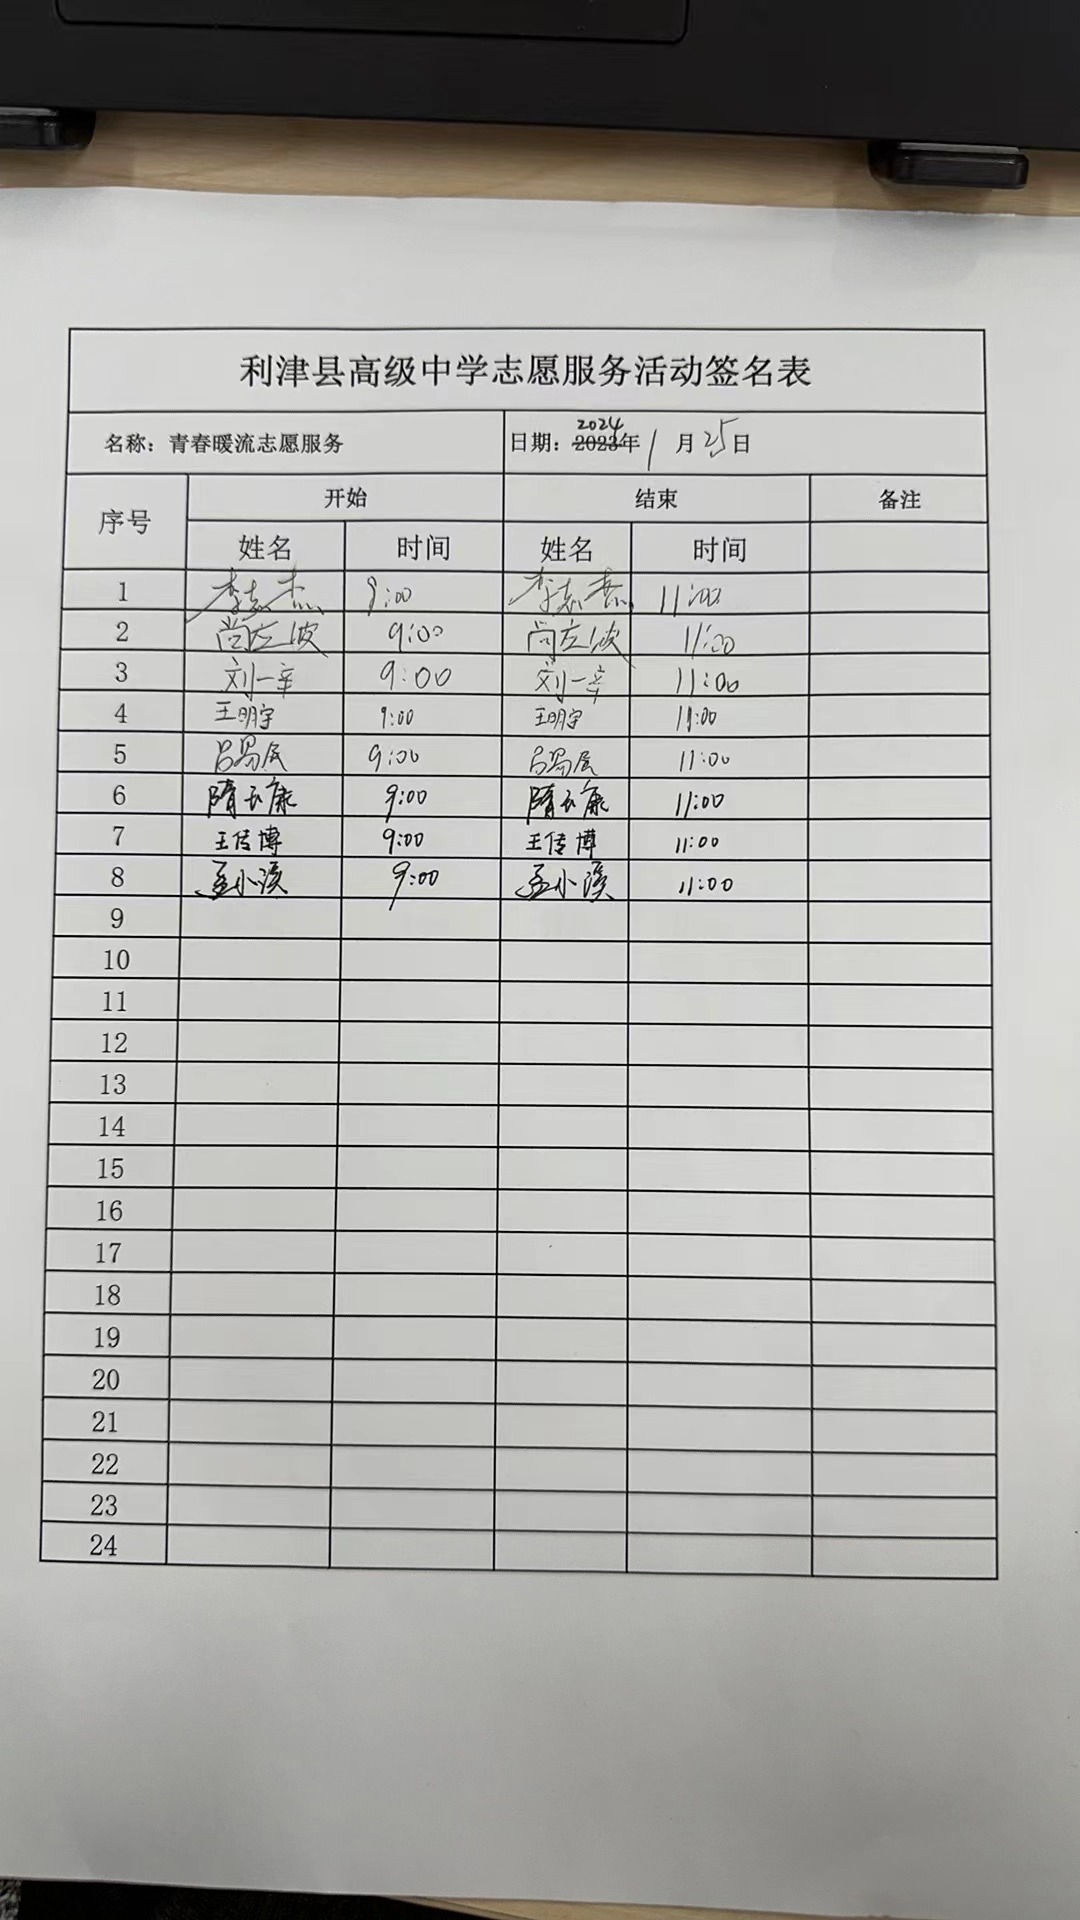 利津县高级中学志愿服务活动签名表
名称：青春暖流志愿服务 日期：2023年 2024 1月25日
序号 开始 结束 备注
姓名 时间 姓名 时间
1 李志杰 9:00 李志杰 11:00
2 尚左波 9:00 尚左波 11:00
3 刘一辛 9:00 刘一辛 11:00
4 王明宇 9:00 王明宇 11:00
5 吕易辰 9:00 吕易辰 11:00
6 隋玉康 9:00 隋玉康 11:00
7 王传博 9:00 王传博 11:00
8 孟小溪 9:00 孟小溪 11:00
9
10
11
12
13
14
15
16
17
18
19
20
21
22
23
24